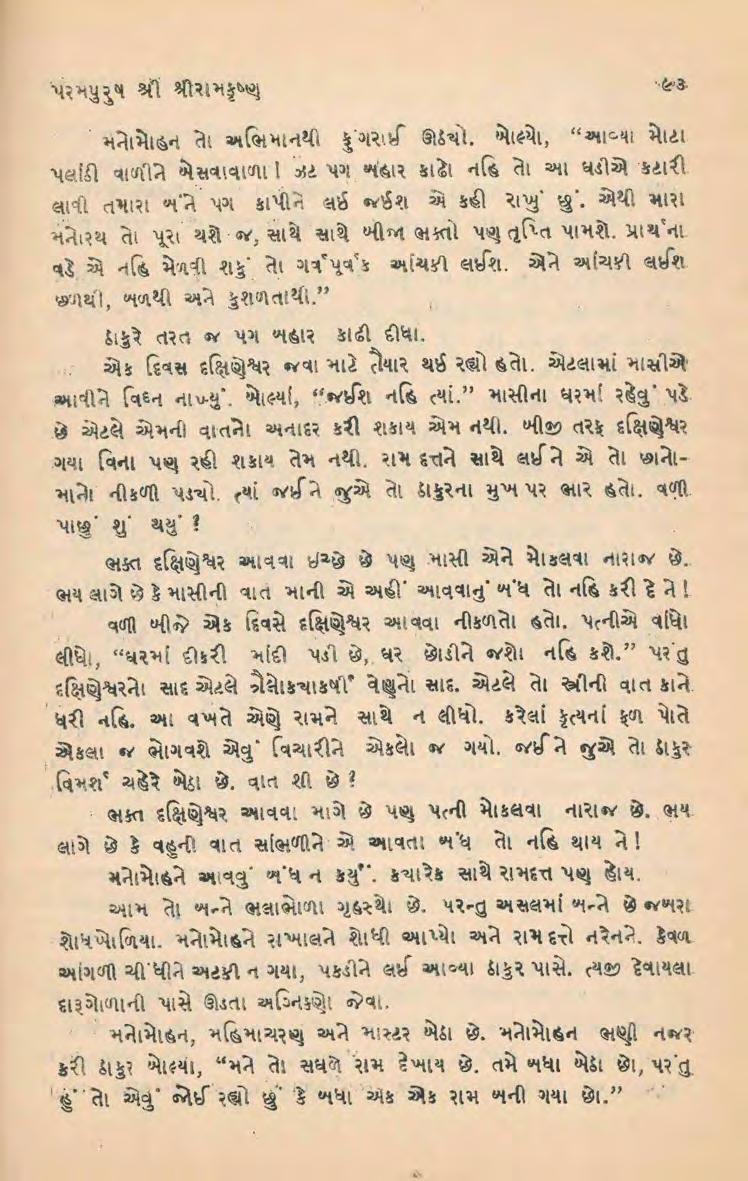 પરમપુરુષ શ્રી શ્રીરામકૃષ્ણ
૯૩
મનોમોહન તો અભિમાનથી ફુંગરાઈ ઊઠ્યો. બોલ્યો, “આવ્યા મોટા
પલાંઠી વાળીને બેસવાવાળા! ઝટ પગ બહાર કાઢો નહિ તો આ ઘડીએ કટારી
લાવી તમારા બંને પગ કાપીને લઈ જઈશ એ કહી રાખું છું. એથી મારા
મનોરથ તો પૂરા થશે જ, સાથે સાથે બીજા ભક્તો પણ તૃપ્તિ પામશે. પ્રાર્થના
વડે એ નહિ મેળવી શકું તો ગર્વપૂર્વક આંચકી લઈશ. એને આંચકી લઈશ
છળથી, બળથી અને કુશળતાથી.”
ઠાકુરે તરત જ પગ બહાર કાઢી દીધા.
એક દિવસ દક્ષિણેશ્વર જવા માટે તૈયાર થઈ રહ્યો હતો. એટલામાં માસીએ
આવીને વિઘ્ન નાખ્યું. બોલ્યાં, “જઈશ નહિ ત્યાં.” માસીના ઘરમાં રહેવું પડે
છે એટલે એમની વાતનો અનાદર કરી શકાય એમ નથી. બીજી તરફ દક્ષિણેશ્વર
ગયા વિના પણ રહી શકાય તેમ નથી. રામ દત્તને સાથે લઈને એ તો છાનો-
માનો નીકળી પડ્યો. ત્યાં જઈને જુએ તો ઠાકુરના મુખ પર ભાર હતો. વળી
પાછું શું થયું?
ભક્ત દક્ષિણેશ્વર આવવા ઇચ્છે છે પણ માસી એને મોકલવા નારાજ છે.
ભય લાગે છે કે માસીની વાત માની એ અહીં આવવાનું બંધ તો નહિ કરી દે ને!
વળી બીજે એક દિવસે દક્ષિણેશ્વર આવવા નીકળતો હતો. પત્નીએ વાંધો
લીધો, “ઘરમાં દીકરી માંદી પડી છે, ઘર છોડીને જશો નહિ કશે.” પરંતુ
દક્ષિણેશ્વરનો સાદ એટલે ત્રૈલોક્યાકર્ષી વેણુનો સાદ. એટલે તો સ્ત્રીની વાત કાને
ધરી નહિ. આ વખતે એણે રામને સાથે ન લીધો. કરેલાં કૃત્યનાં ફળ પોતે
એકલા જ ભોગવશે એવું વિચારીને એકલો જ ગયો. જઈને જુએ તો ઠાકુર
વિમર્શ ચહેરે બેઠા છે. વાત શી છે?
ભક્ત દક્ષિણેશ્વર આવવા માગે છે પણ પત્ની મોકલવા નારાજ છે. ભય
લાગે છે કે વહુની વાત સાંભળીને એ આવતા બંધ તો નહિ થાય ને!
મનોમોહને આવવું બંધ ન કર્યું. ક્યારેક સાથે રામદત્ત પણ હોય.
આમ તો બન્ને ભલાભોળા ગૃહસ્થો છે. પરન્તુ અસલમાં બન્ને છે જબરા
શોધખોળિયા. મનોમોહને રાખાલને શોધી આપ્યો અને રામ દત્તે નરેનને. કેવળ
આંગળી ચીંધીને અટકી ન ગયા, પકડીને લઈ આવ્યા ઠાકુર પાસે. ત્યજી દેવાયલા
દારૂગોળાની પાસે ઊડતા અગ્નિકણો જેવા.
મનોમોહન, મહિમાચરણ અને માસ્ટર બેઠા છે. મનોમોહન ભણી નજર
કરી ઠાકુર બોલ્યા, “મને તો સઘળે રામ દેખાય છે. તમે બધા બેઠા છો, પરંતુ
હું તો એવું જોઈ રહ્યો છું કે બધા એક એક રામ બની ગયા છો.”